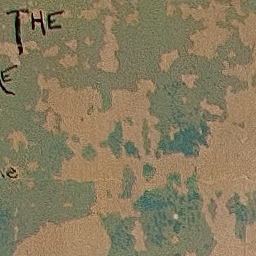 THE
E
e